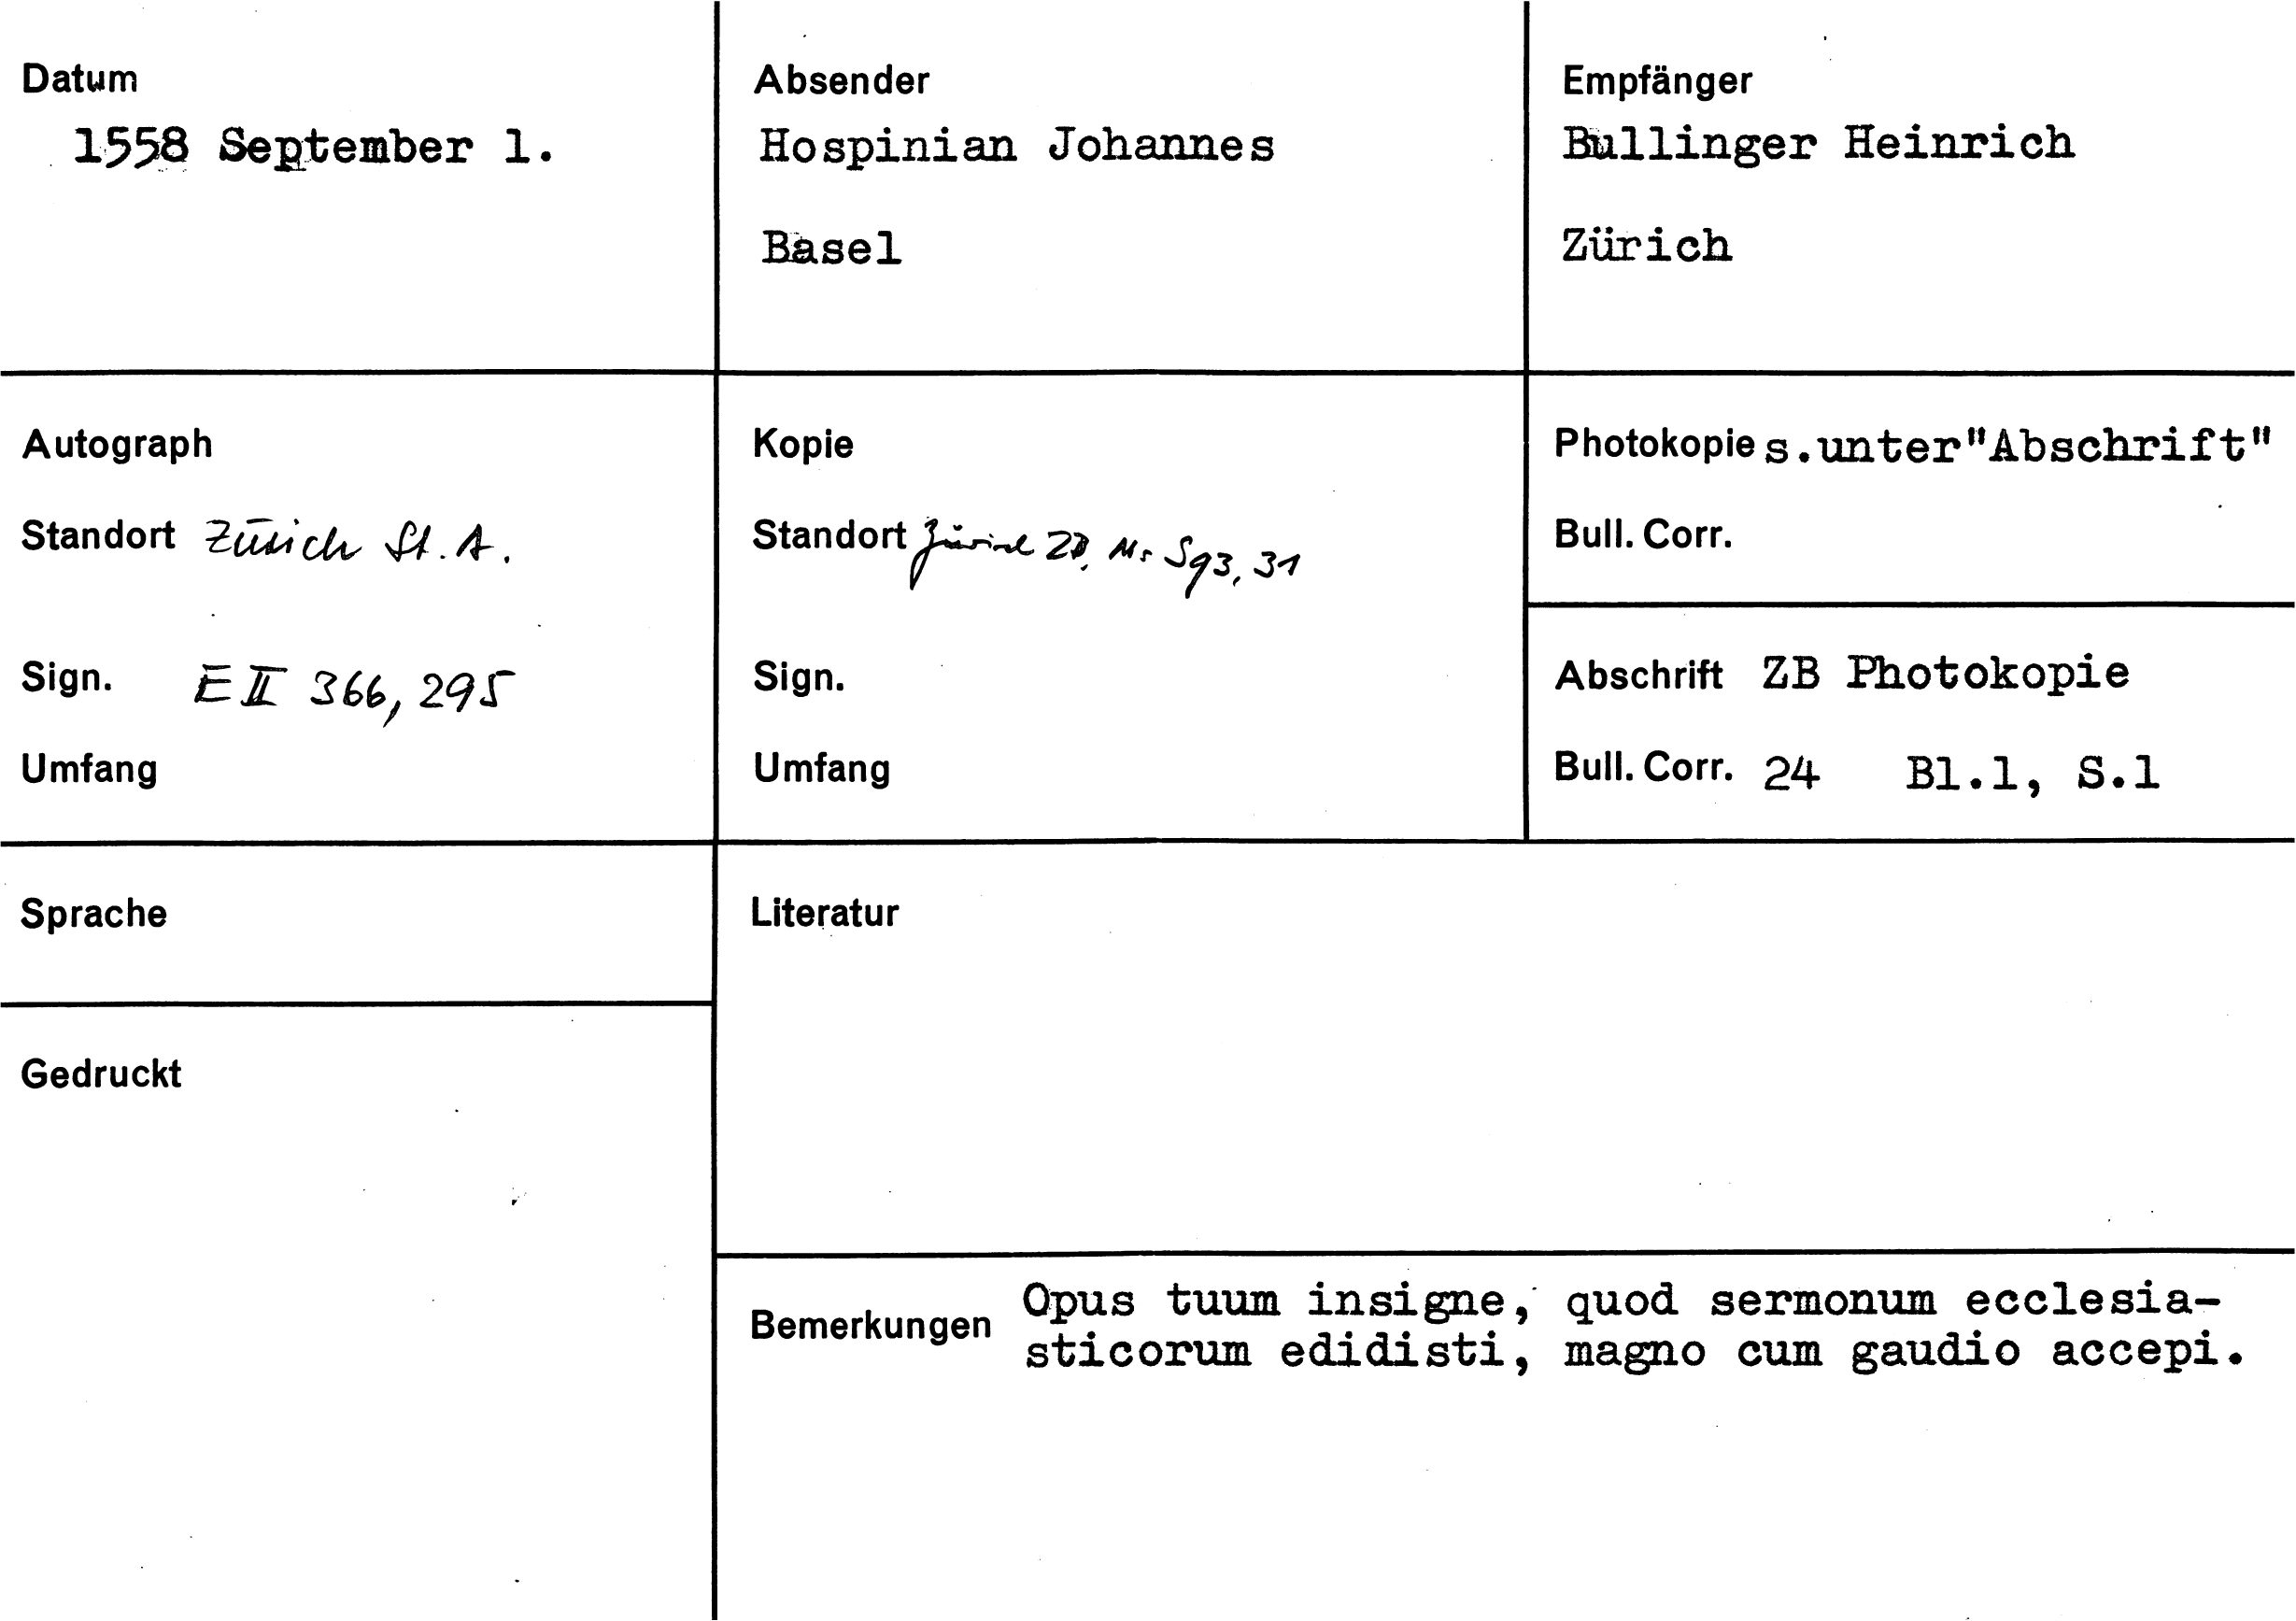 Datum
1558 September 1.
Absender
Hospinian Johannes
Basel
Empfänger
Bullinger Heinrich
Zürich
Autograph
Standort Zürich St. A.
Sign. E II 366, 295
Umfang
Kopie
Standort Zürich ZB, Ms S 93, 31
Sign.
Umfang
Photokopie s.unter"Abschrift"
Bull. Corr.
Abschrift ZB Photokopie
Bull. Corr. 24 Bl.1, S.1
Sprache
Gedruckt
Literatur
Bemerkungen Opus tuum insigne, quod sermonum ecclesia-
sticorum edidisti, magno cum gaudio accepi.